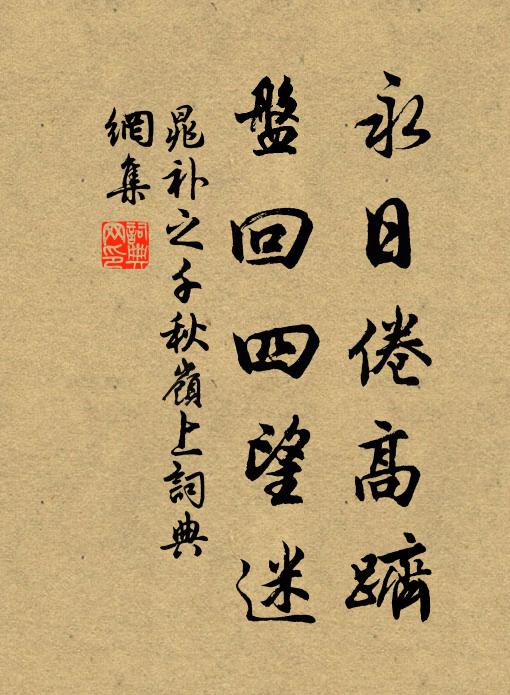 永日倦高躋
盤回四望迷
晁补之千秋嶺上詞典
網集
詞典
网印